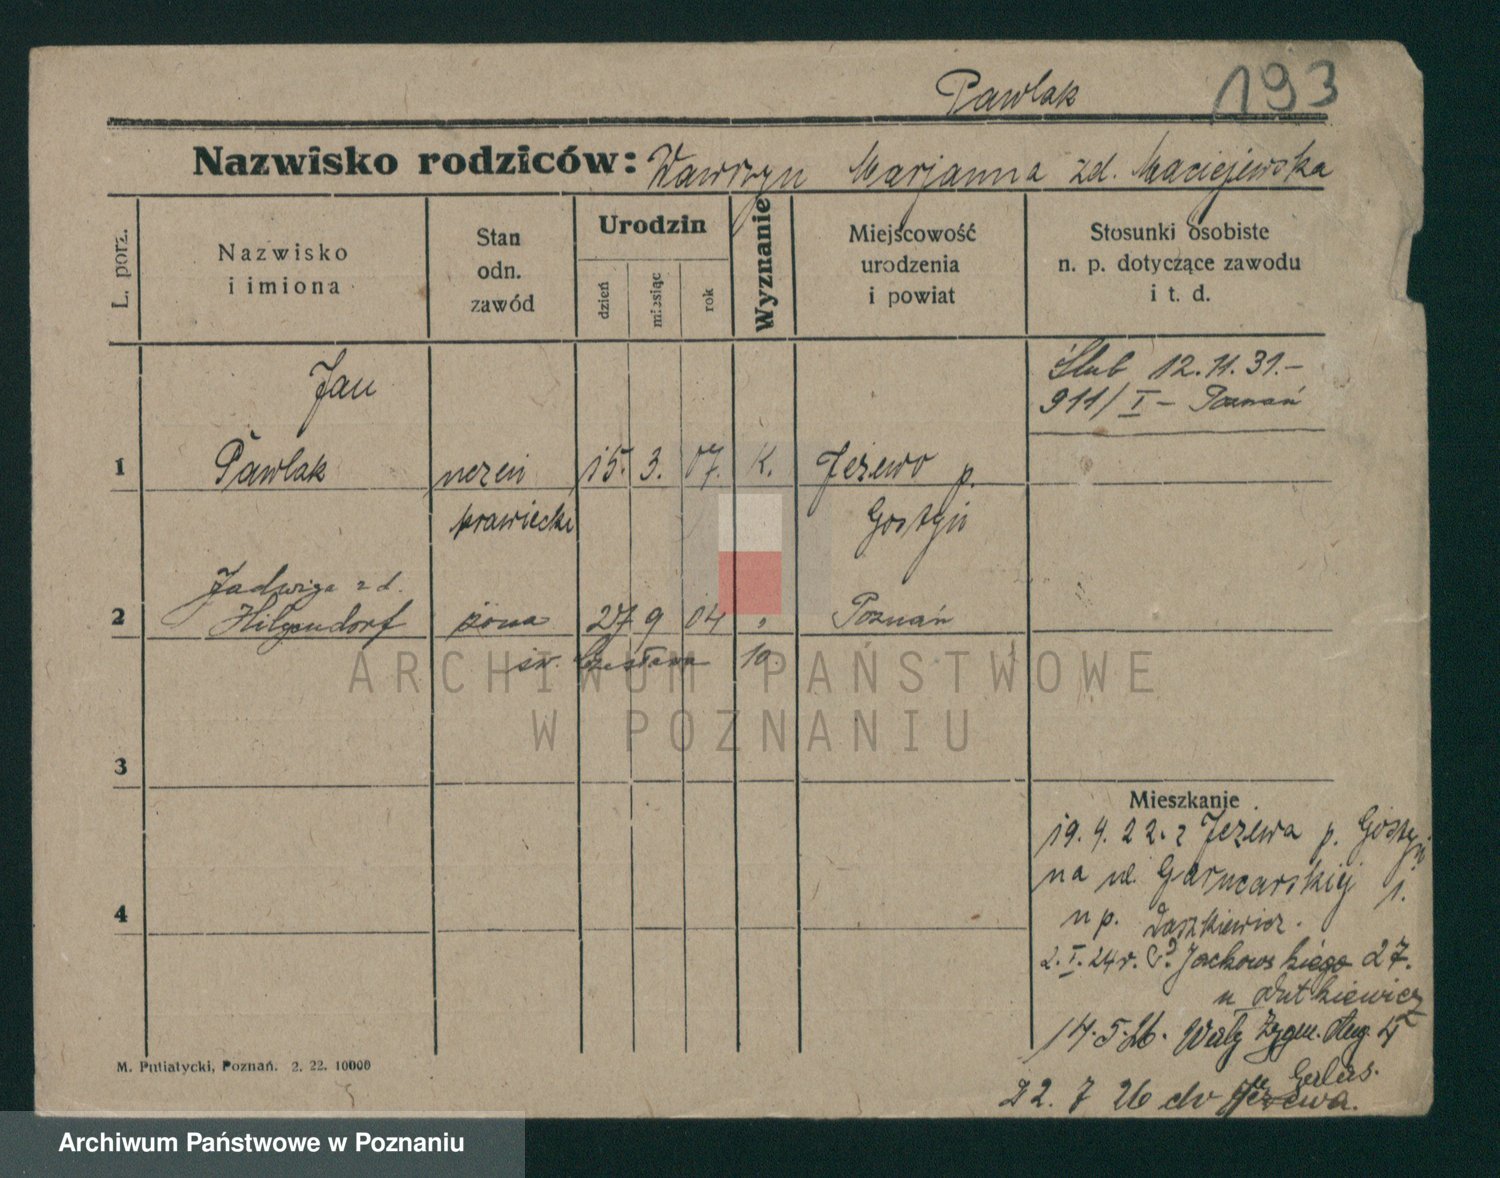 Pawlak 193
Nazwisko rodziców: Wawrzyn Marjanna zd. Maciejewska
L. porz.
Nazwisko
i imiona
Stan
odn.
zawód
Urodzin
dzień
miesiąc
rok
Wyznanie
Miejscowość
urodzenia
i powiat
Stosunki osobiste
n. p. dotyczące zawodu
i t. d.
Ślub 12.11.31.-
911/I - Poznań
Jan
1 Pawlak uczeń 15. 3. 07. K. Jeżewo p.
krawiecki Gostyń
Jadwiga zd.
2 Hilgendorf żona 27 9 04 " Poznań
św. Czesława 10.
ARCHIWUM PAŃSTWOWE
W POZNANIU
3
4
Mieszkanie
19. 4. 22. z Jeżewa p. Gostyń
na ul. Garncarskiej 1.
u p. Daszkiewicz.
2. I. 24r. Jackowskiego 27.
u Dutkiewicz
14. 5. 26. Wały Zygm. Aug. 4
u Galas.
22. 7 26 do Jeżewa.
M. Putiatycki, Poznań. 2. 22. 10000
Archiwum Państwowe w Poznaniu